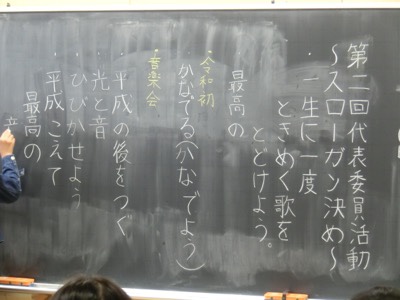 第二回代表委員活動
～スローガン決め～
・一生に一度
ときめく歌を
とどけよう。
・最高の
令和初
かなでる(かなでよう)
音楽会
・平成の後をつぐ
・光と音
ひびかせよう
・平成こえて
最高の
音